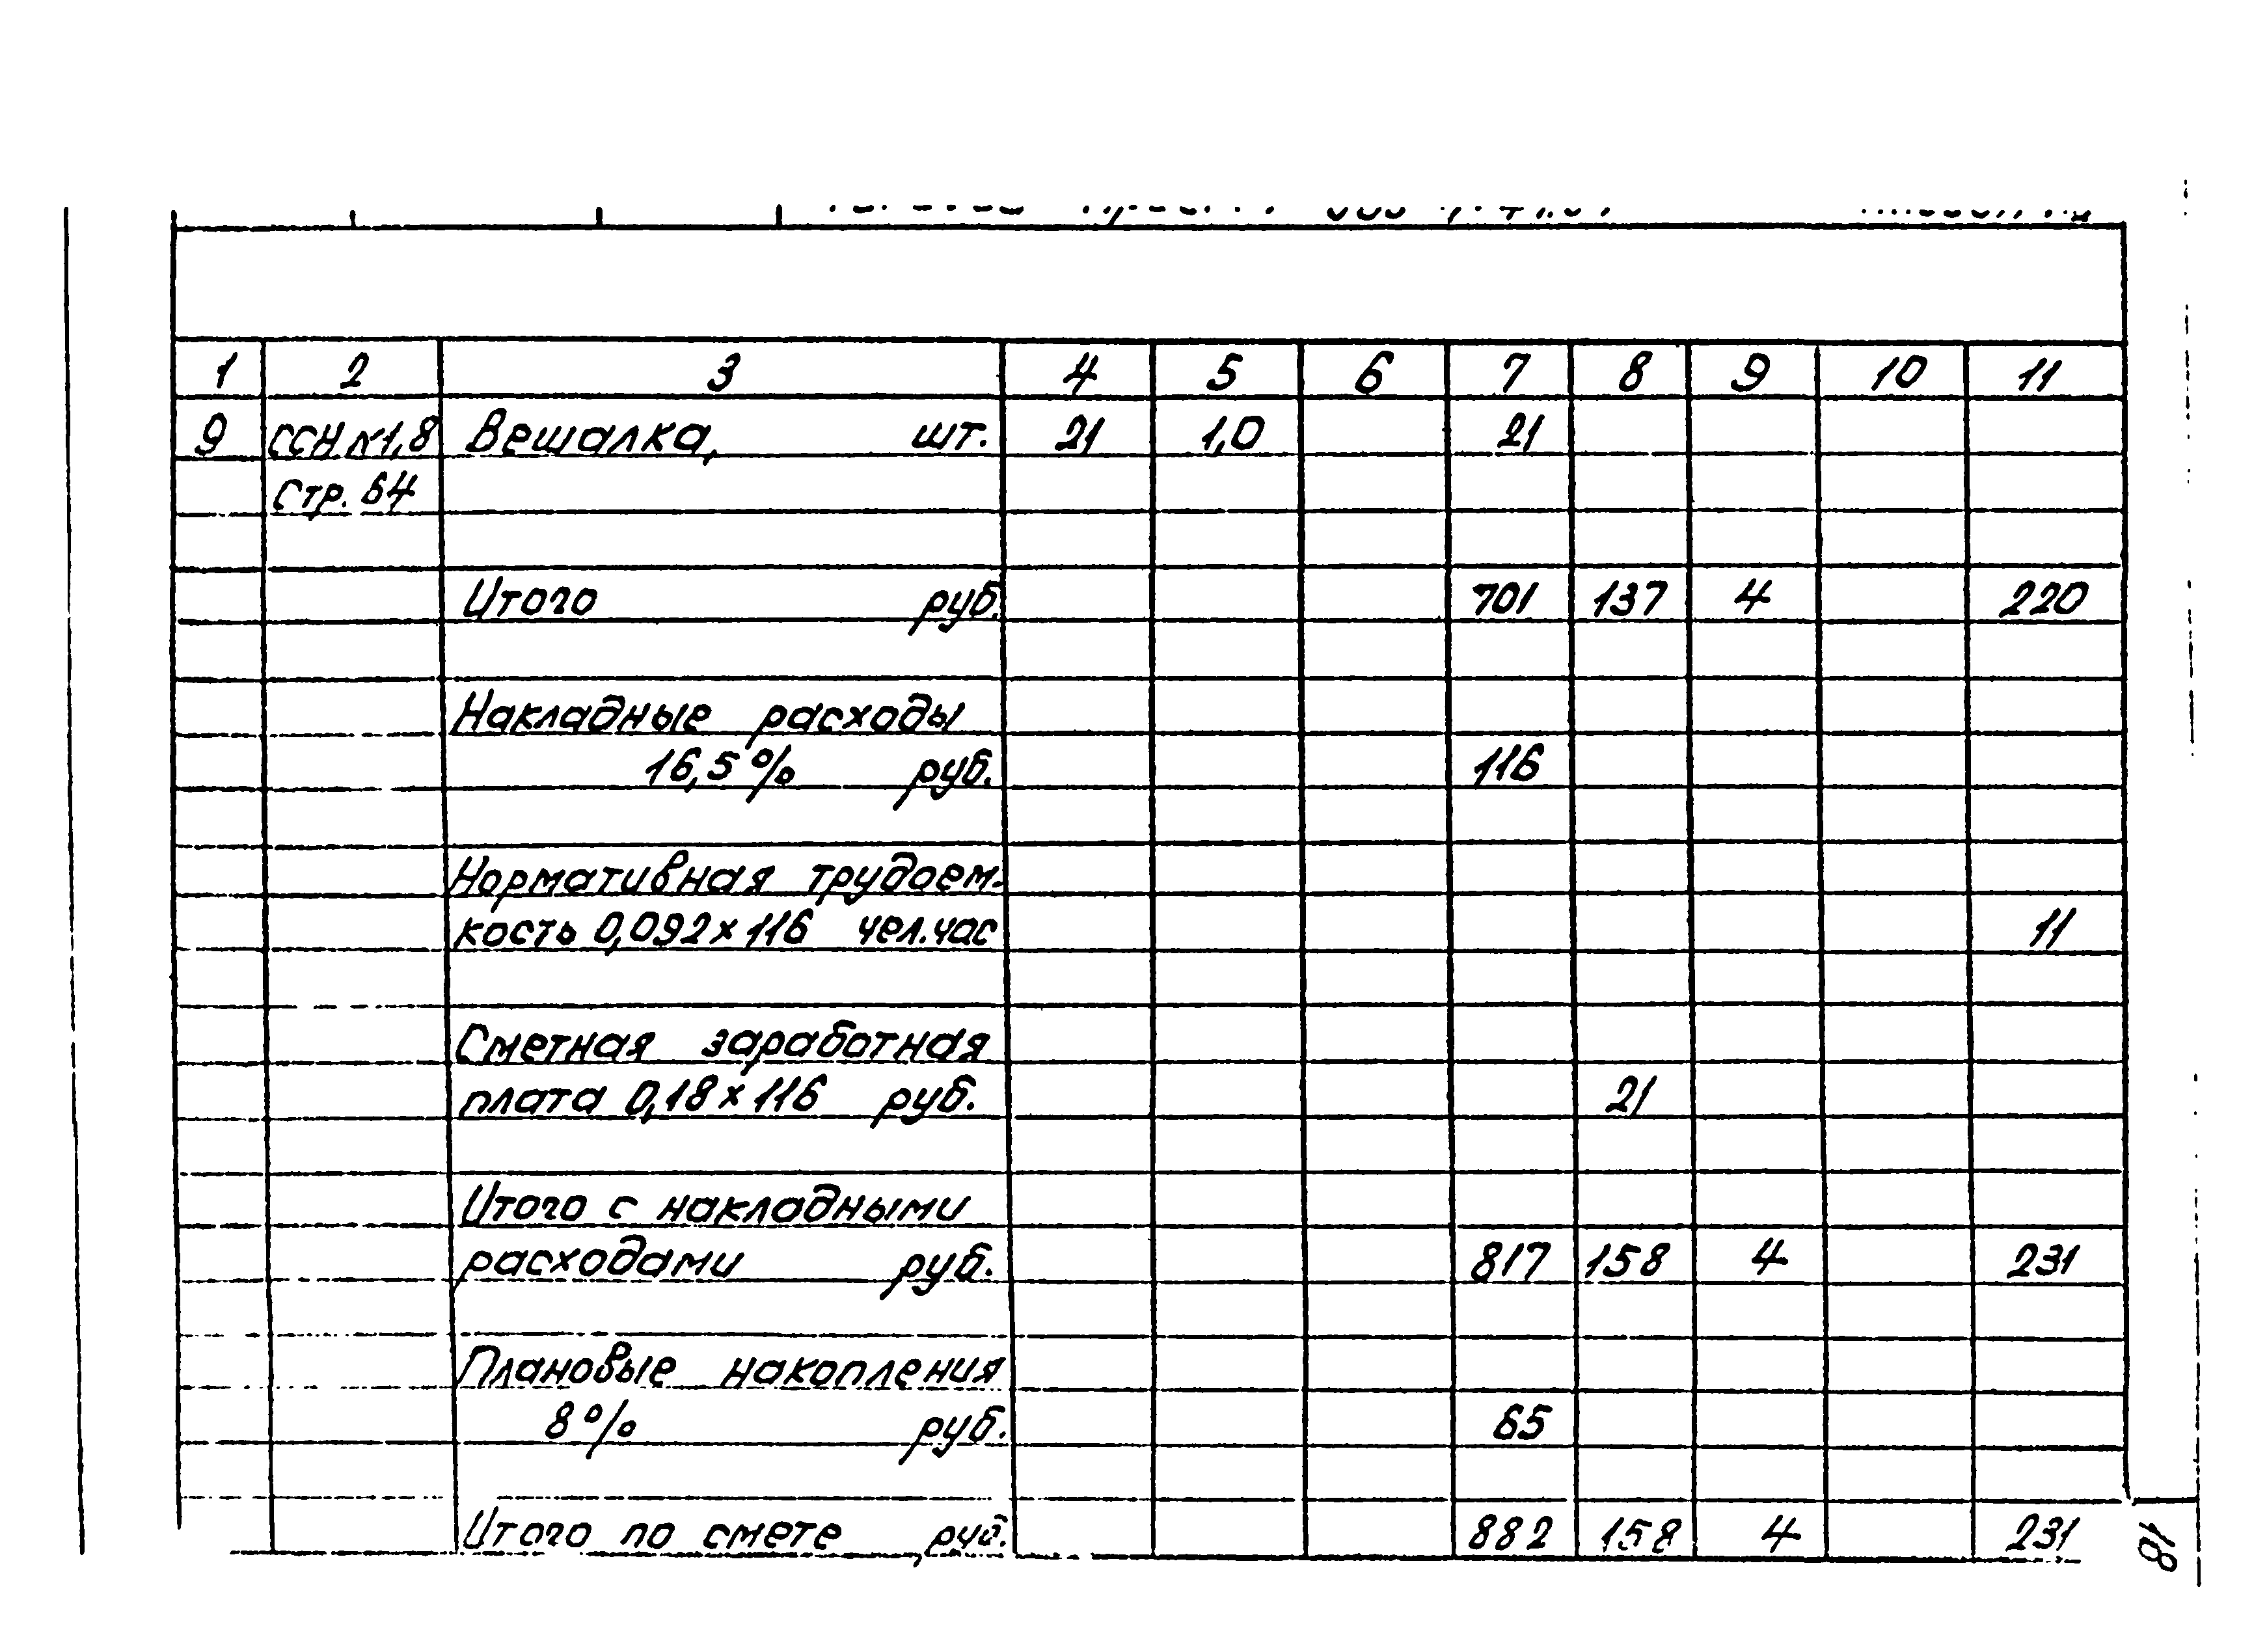 1 2 3 4 5 6 7 8 9 10 11
9 ССН №1,8 Вешалка, шт. 21 1,0 21
Стр. 64
Итого руб. 701 137 4 220
Накладные расходы
16,5% руб. 116
Нормативная трудоем-
кость 0,092×116 чел.час 11
Сметная заработная
плата 0,18×116 руб. 21
Итого с накладными
расходами руб. 817 158 4 231
Плановые накопления
8% руб. 65
Итого по смете руб. 882 158 4 231
18